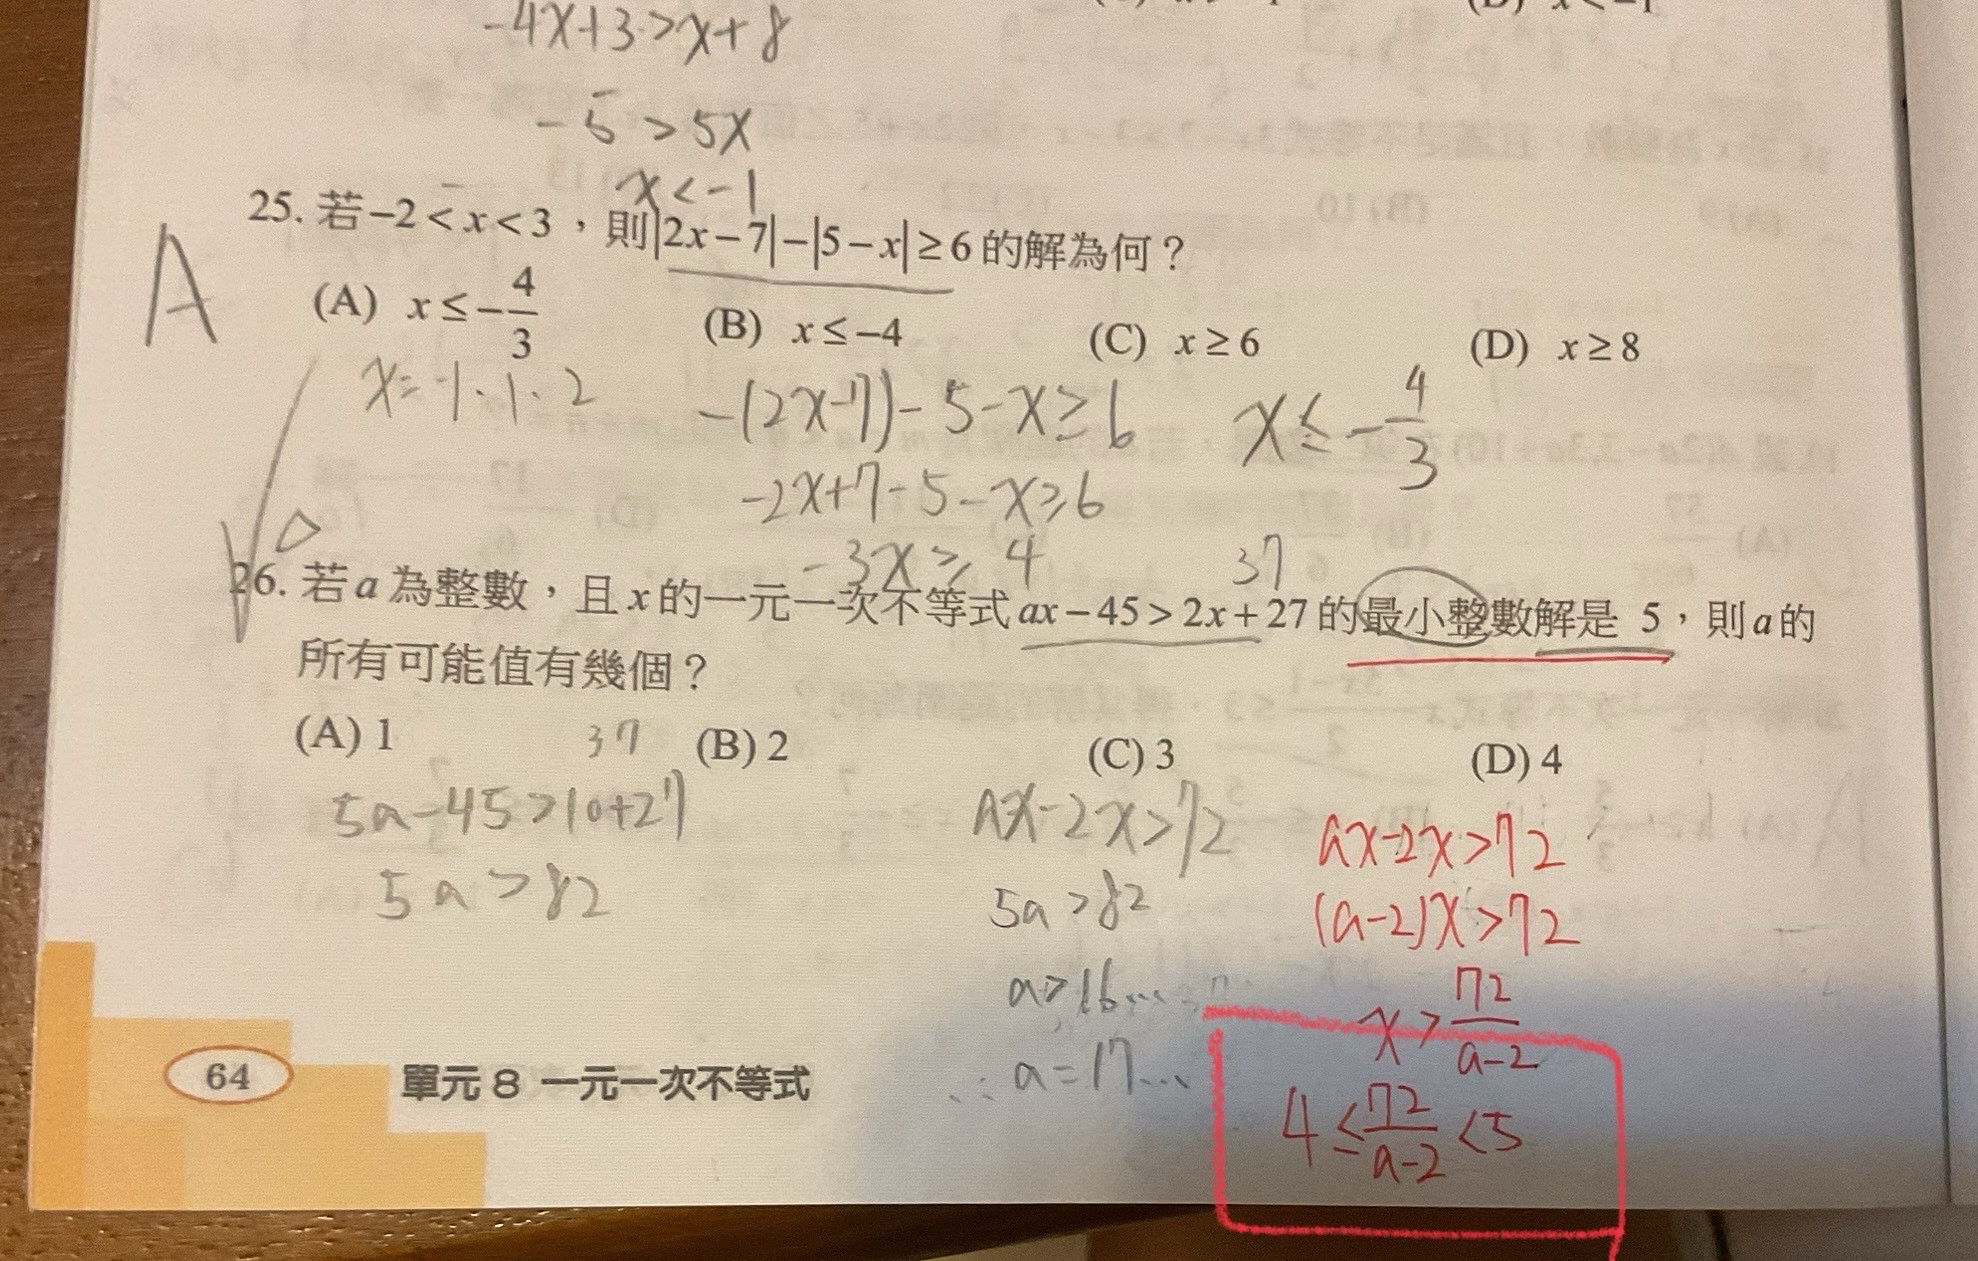 -4x+3>x+8
-5>5x
x<-1
25. 若-2<x<3，則|2x-7|-|5-x|≥6的解為何？
A
(A) x≤-4/3 (B) x≤-4 (C) x≥6 (D) x≥8
x=-1.1.2
-(2x-7)-5-x≥6
x≤-4/3
-2x+7-5-x≥6
-3x≥4
37
26. 若a為整數，且x的一元一次不等式ax-45>2x+27的最小整數解是 5，則a的
所有可能值有幾個？
(A) 1 (B) 2 (C) 3 (D) 4
37
5a-45>10+27
5a>82
ax-2x>72
5a>82
a>16...
∴a=17...
ax-2x>72
(a-2)x>72
x>72/a-2
4≤72/a-2<5
64 單元 8 一元一次不等式